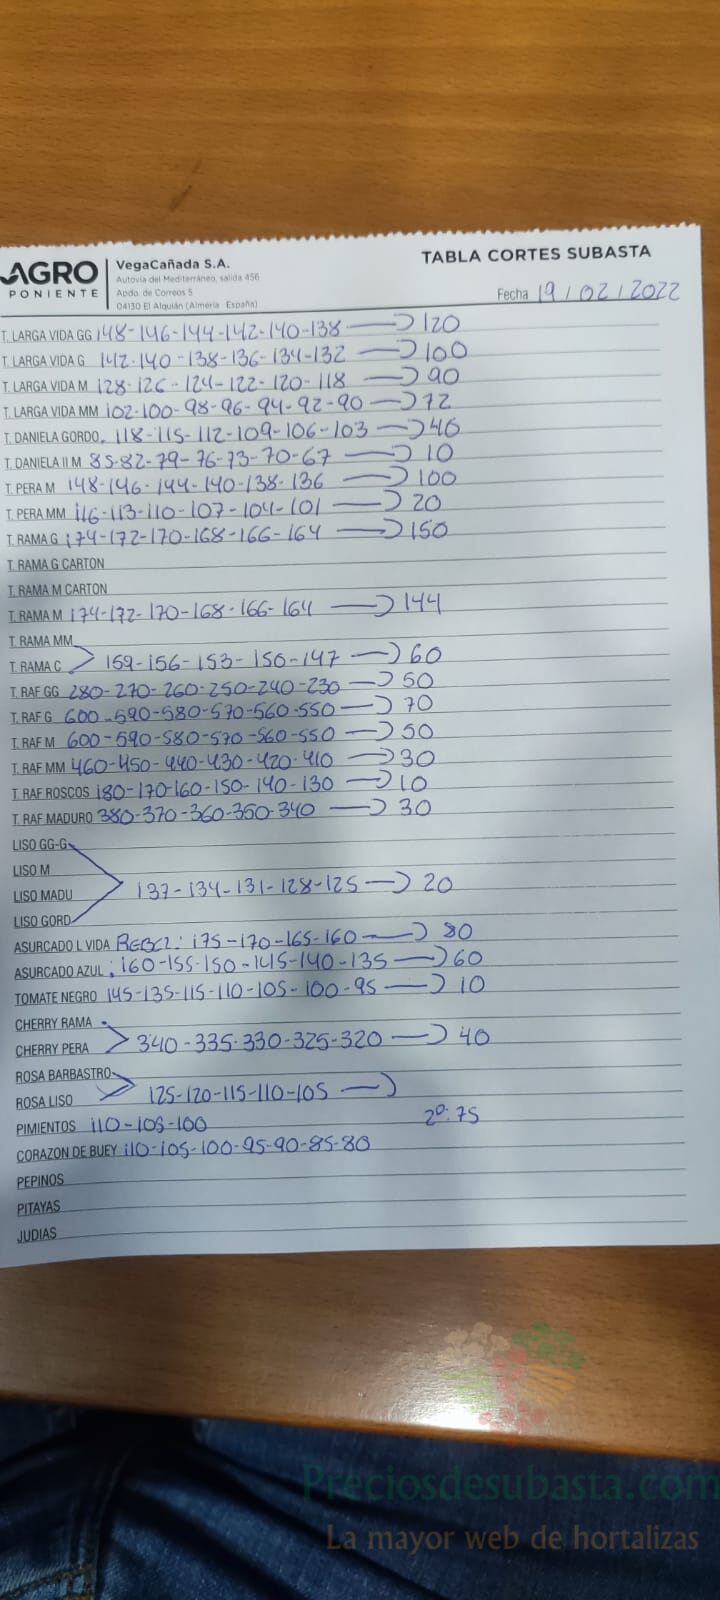 AGRO
PONIENTE
VegaCañada S.A.
Autovía del Mediterráneo, salida 456
Apdo. de Correos 5
04130 El Alquián (Almería · España)
TABLA CORTES SUBASTA
Fecha 19/02/2022
T. LARGA VIDA GG 148-146-144-142-140-138 → 120
T. LARGA VIDA G 142-140-138-136-134-132 → 100
T. LARGA VIDA M 128-126-124-122-120-118 → 90
T. LARGA VIDA MM 102-100-98-96-94-92-90 → 72
T. DANIELA GORDO. 118-115-112-109-106-103 → 40
T. DANIELA II M 85-82-79-76-73-70-67 → 10
T. PERA M 148-146-144-140-138-136 → 100
T. PERA MM 116-113-110-107-104-101 → 20
T. RAMA G 174-172-170-168-166-164 → 150
T. RAMA G CARTON
T. RAMA M CARTON
T. RAMA M 174-172-170-168-166-164 → 144
T. RAMA MM
T. RAMA C 159-156-153-150-147 → 60
T. RAF GG 280-270-260-250-240-230 → 50
T. RAF G 600-590-580-570-560-550 → 70
T. RAF M 600-590-580-570-560-550 → 50
T. RAF MM 460-450-440-430-420-410 → 30
T. RAF ROSCOS 180-170-160-150-140-130 → 10
T. RAF MADURO 380-370-360-350-340 → 30
LISO GG-G
LISO M
LISO MADU 137-134-131-128-125 → 20
LISO GORD
ASURCADO L VIDA 175-170-165-160 → 80
ASURCADO AZUL : 160-155-150-145-140-135 → 60
TOMATE NEGRO 145-135-115-110-105-100-95 → 10
CHERRY RAMA
CHERRY PERA 340-335-330-325-320 → 40
ROSA BARBASTRO
ROSA LISO 125-120-115-110-105 →
PIMIENTOS 110-105-100 2º: 75
CORAZON DE BUEY 110-105-100-95-90-85-80
PEPINOS
PITAYAS
JUDIAS
Preciosdesubasta.com
La mayor web de hortalizas